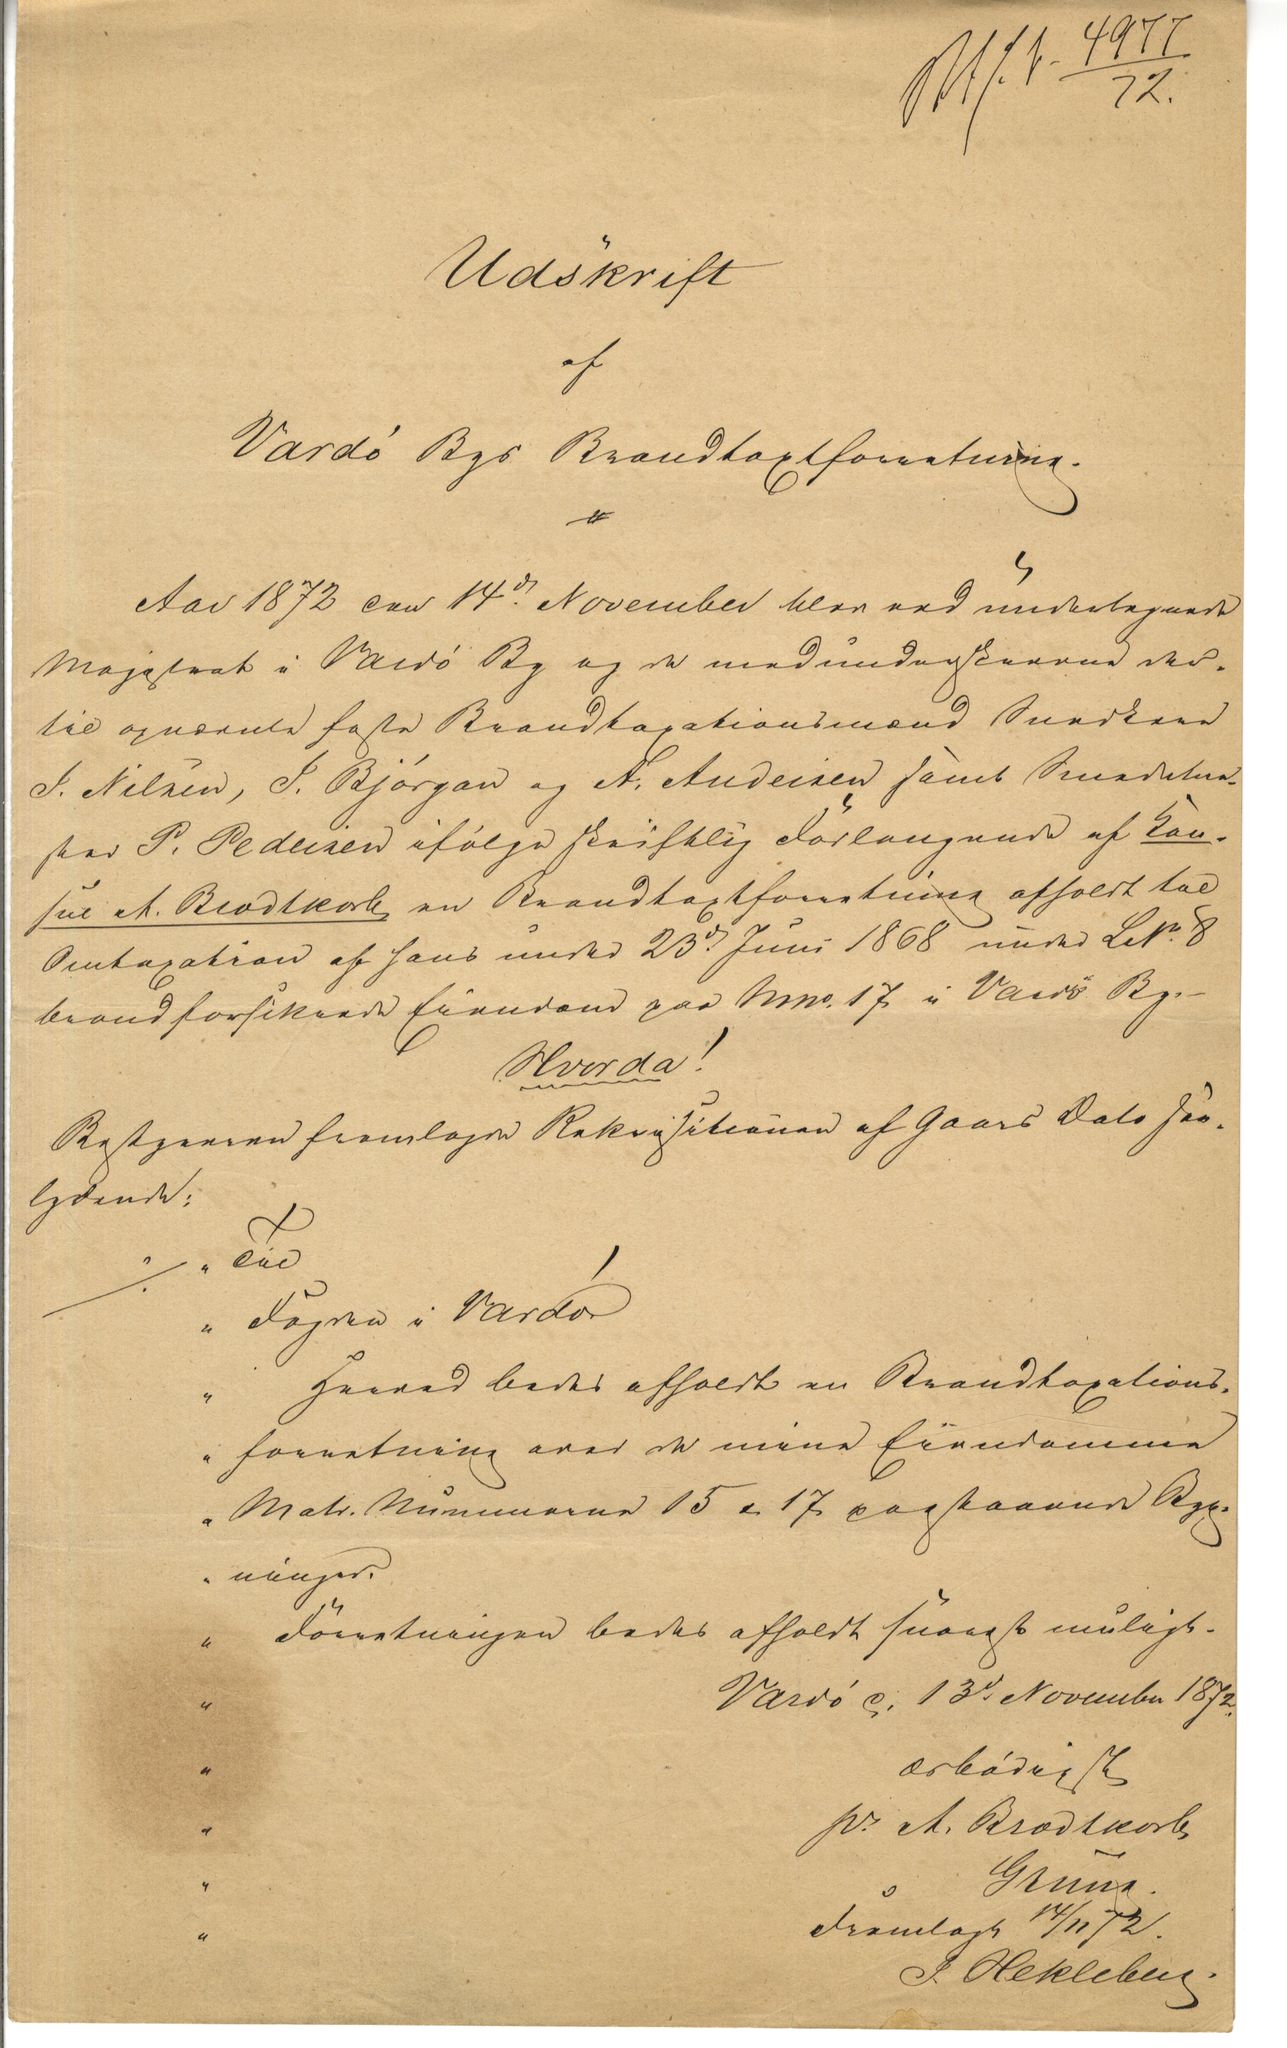 4977
72.
Udskrift
af
Vardö Byes Brandtaxtforretning.
Aar 1872 den 14de November blev ved undertegnede
Magistrat i Vardö By og de medunderskrevne der-
til opnævnte faste Brandtaxationsmænd Snedkere
I. Nilsen, I. Björgan og A. Andersen samt Smedeme-
ster P. Pedersen ifölge skriftlig Forlangende af Kon-
sul A. Brodtkorb en Brandtaxtforretning afholdt til
Omtaxation af hans under 23de Juni 1868 under L No. 8
brandforsikrede Eiendom paa Mno. 17 i Vardö By.-
Hvorda!
Bestyreren fremlagde Rekvisitionen af Gaars Dato saa-
lydende:
" Til
" Fogden i Vardö!
" Herved bedes afholdt en Brandtaxations-
" forretning over de mine Eiendomme
" Matr. Nummerne 15 & 17 paastaaende Byg-
" ninger.
" Forretningen bedes afholdt snarest muligt.
" Vardö d. 13de November 1872.
" ærbödigst
" pr. A. Brodtkorb
" Grüne.
" Fremlagt 14/11 72.
I. Hekleberg.